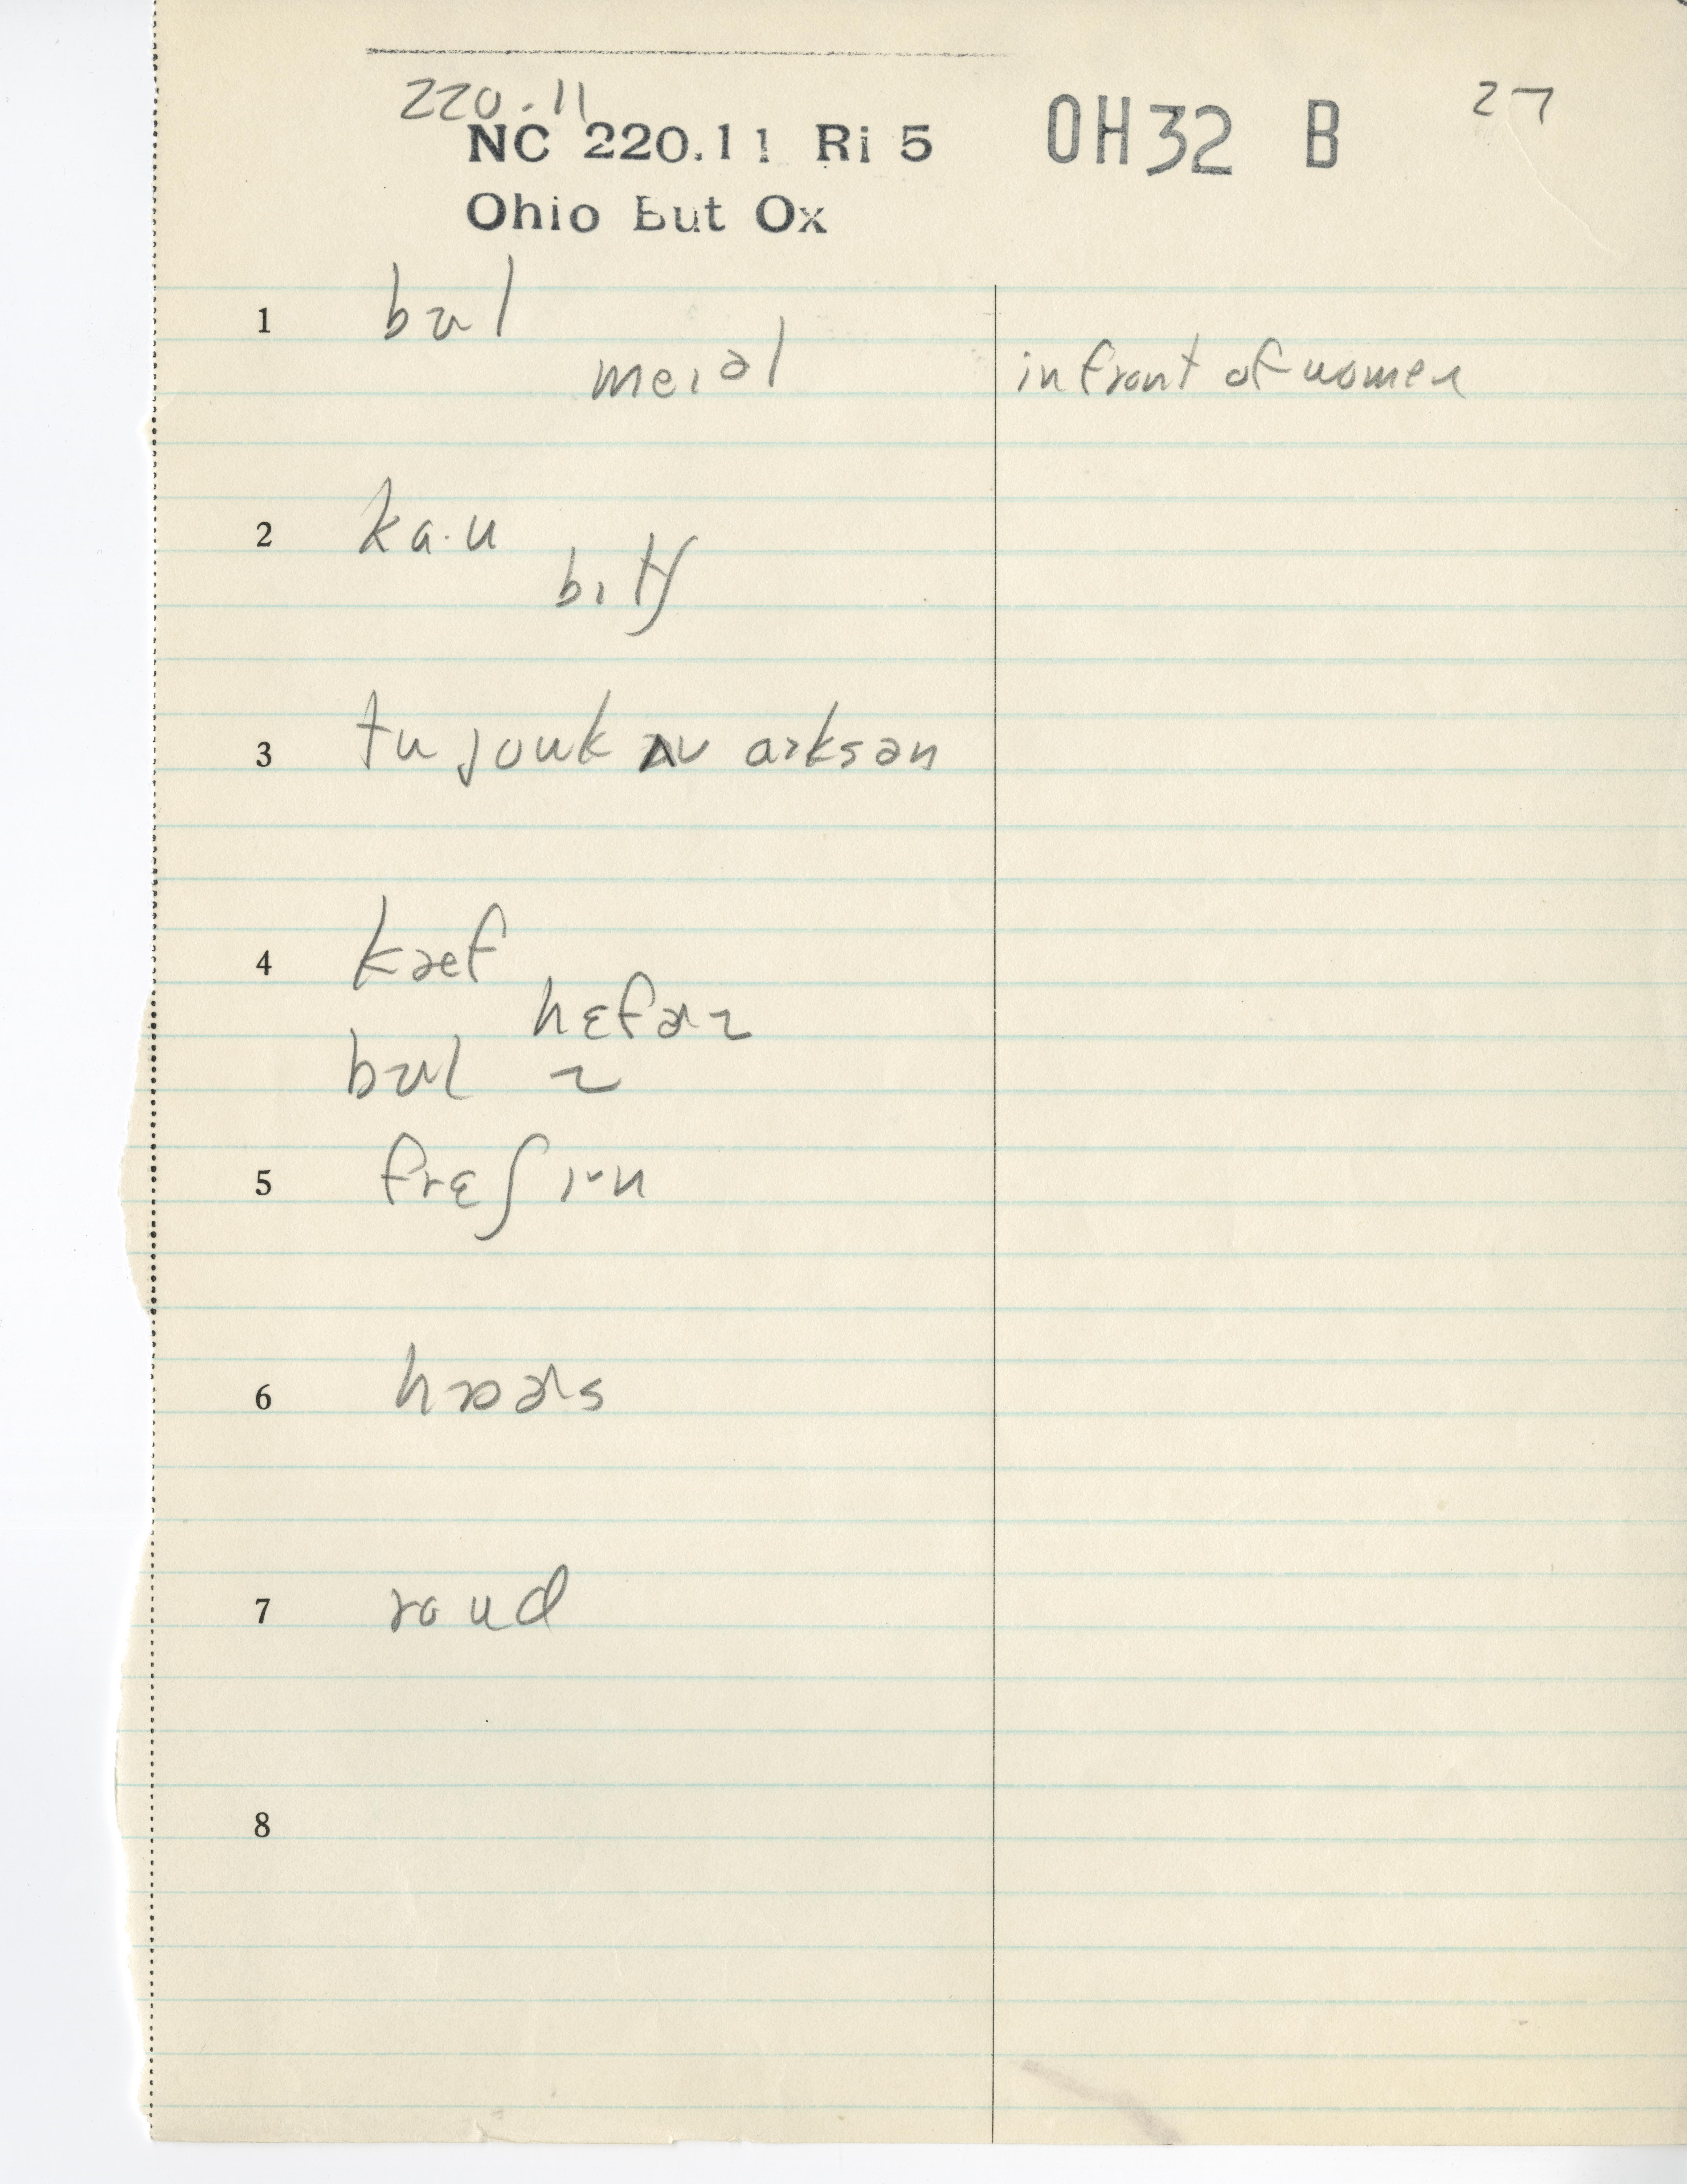 220.11
NC 220.11 Ri 5
OH32 B
27
Ohio But Ox
1 bʊl
meɪəl
in front of women
2 ka·u
bɪtʃ
3 tu jouk əv aɪksən
4 kæf
hɛfəz
bʊl z
5 frɛʃ ɪn
6 hɔɚs
7 roud
8